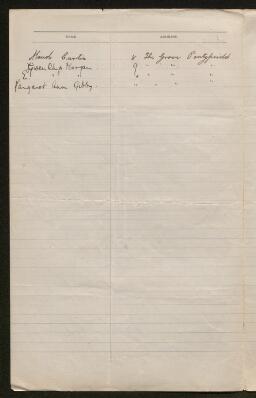 NAME ADDRESS
Maud Curtis 8 The Grove Pontypridd
Gwen 9 " " "
E. " " " " "
Margaret Ann Gibby " " " "